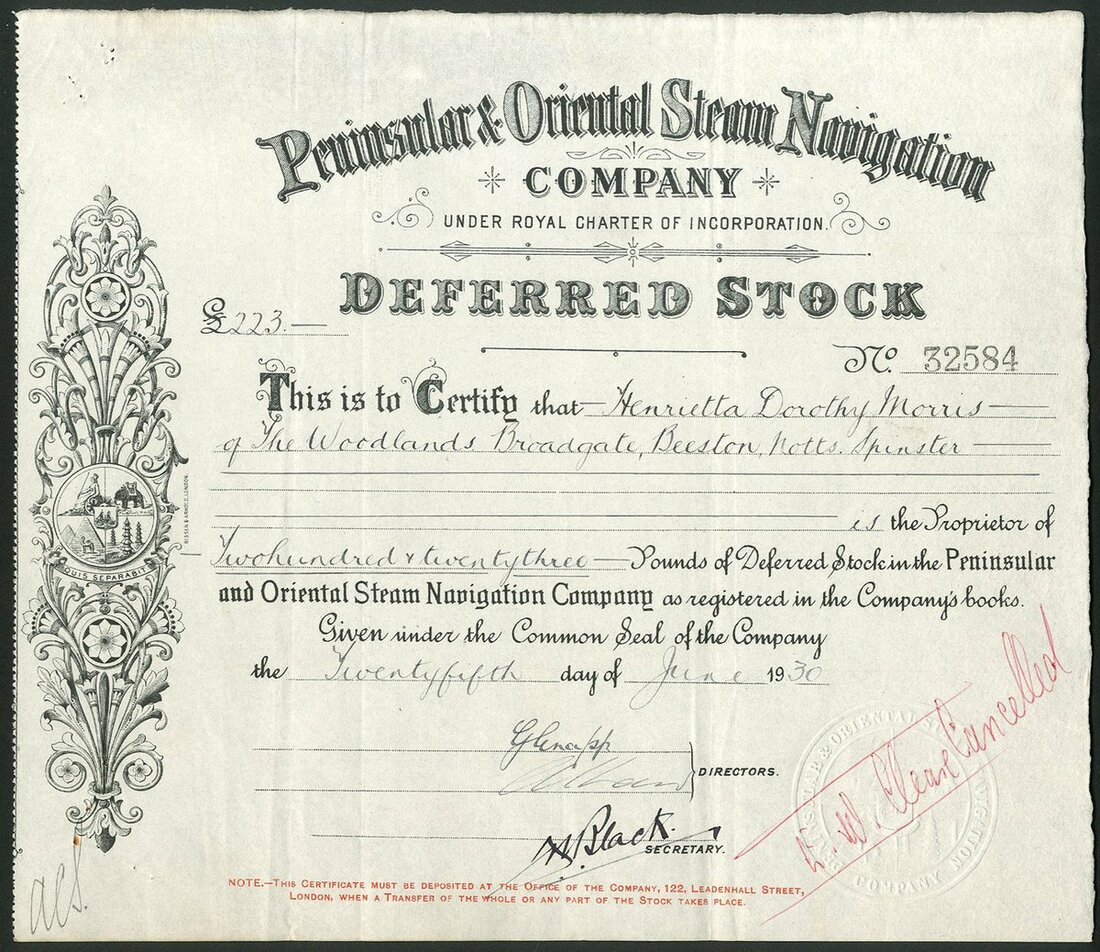 Peninsular & Oriental Steam Navigation
COMPANY
UNDER ROYAL CHARTER OF INCORPORATION.
DEFERRED STOCK
£223.—
No. 32584
This is to Certify that Henrietta Dorothy Morris
of The Woodlands Broadgate, Beeston, Notts. Spinster
is the Proprietor of
Two hundred & twenty three Pounds of Deferred Stock in the Peninsular
and Oriental Steam Navigation Company as registered in the Company's books.
Given under the Common Seal of the Company
the Twentyfifth day of June 1930
QUIS SEPARABIT
LONDON.
Glenapp
DIRECTORS.
Black.
SECRETARY.
Cancelled
& ORIENTAL
NAVIGATION
COMPANY
NOTE.—THIS CERTIFICATE MUST BE DEPOSITED AT THE OFFICE OF THE COMPANY, 122, LEADENHALL STREET,
LONDON, WHEN A TRANSFER OF THE WHOLE OR ANY PART OF THE STOCK TAKES PLACE.